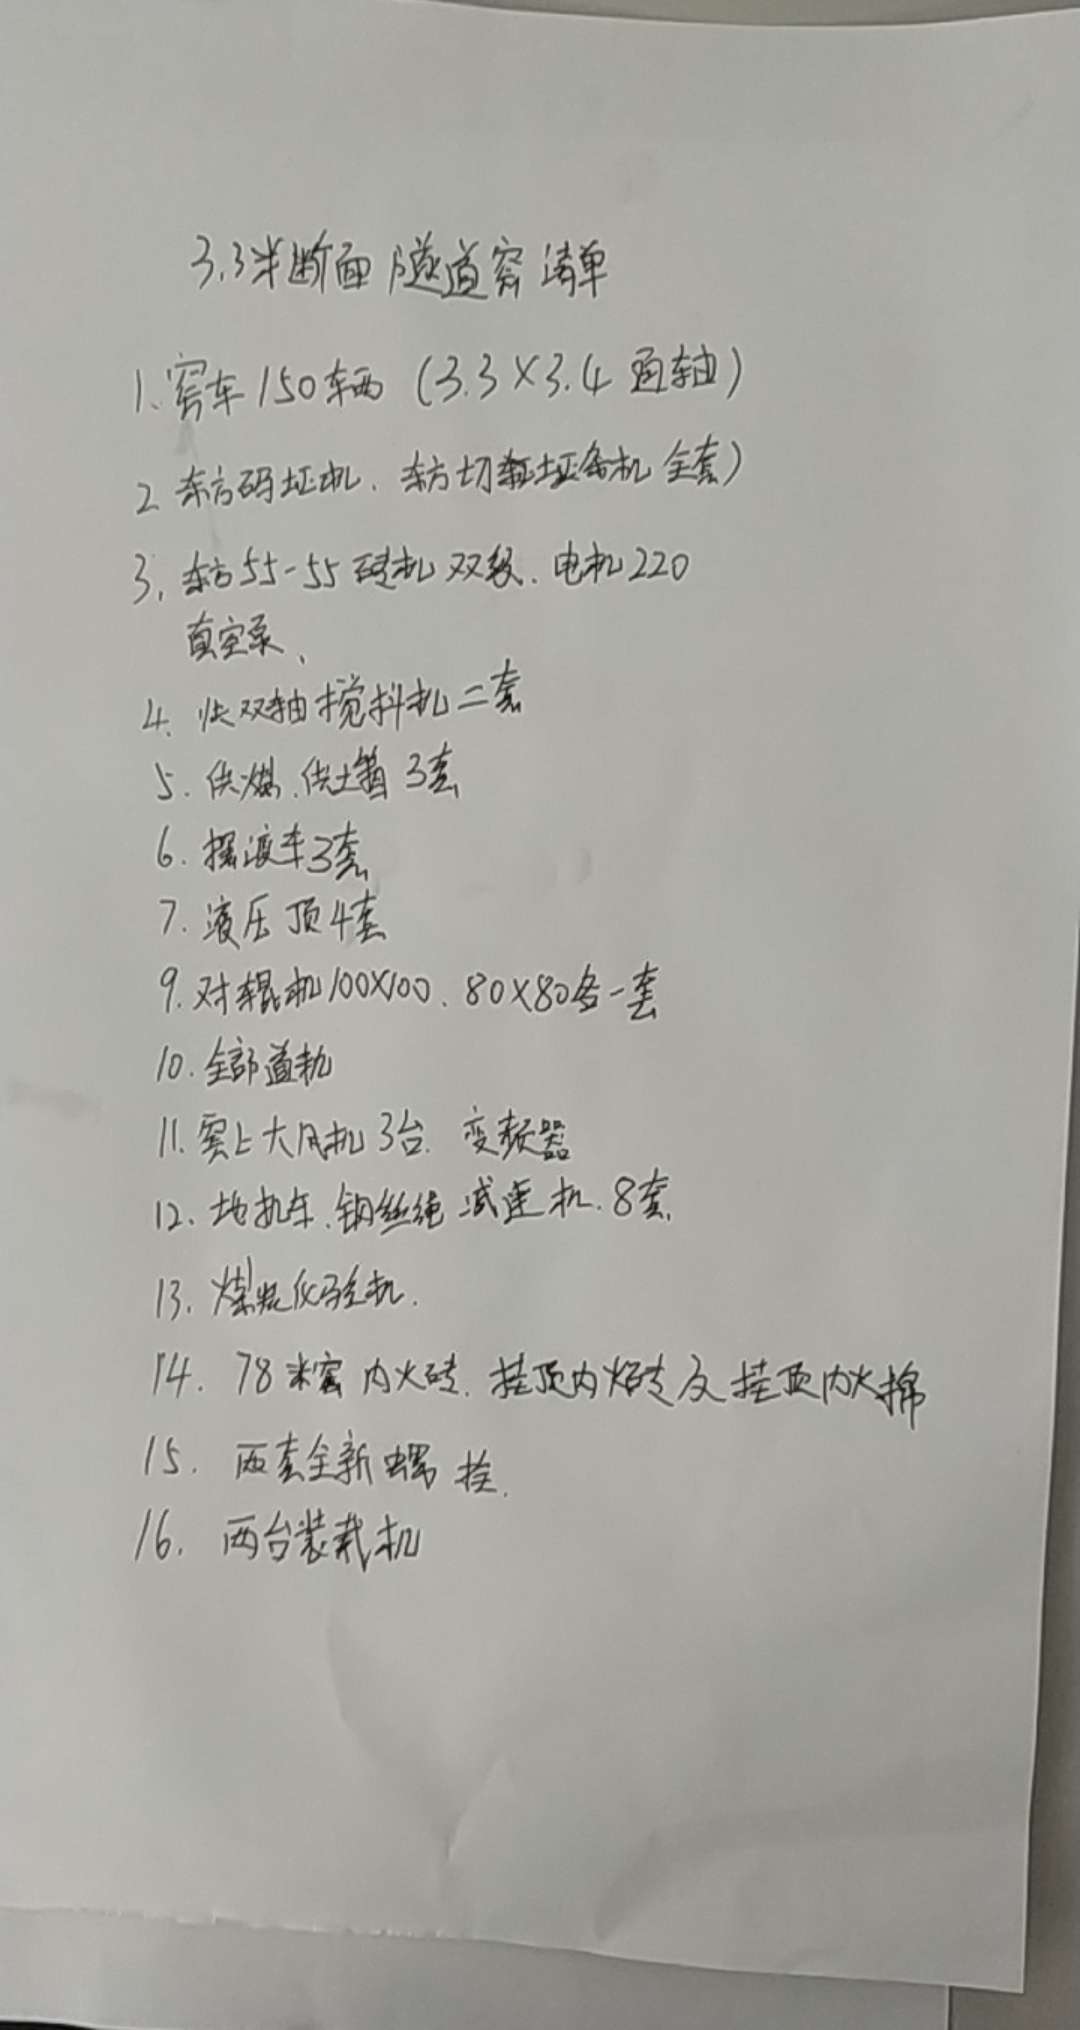 3.3米断面隧道窑清单
1.窑车150车辆(3.3×3.4通轴)
2 东方码坯机、东方切条坯条机 全套)
3.东方55-55砖机双级.电机220
真空泵、
4.双轴搅拌机二套
5.供煤.供土箱3套
6.摆渡车3套
7.液压顶4套
9.对辊机100×100.80×80各一套
10.全部道轨
11.窑上大风机3台.变频器
12.地扒车.钢丝绳减速机.8套
13.煤炭化验机.
14.78米窑内火砖.挂顶内火砖及挂顶内火棉
15.两套全新螺栓.
16.两台装载机